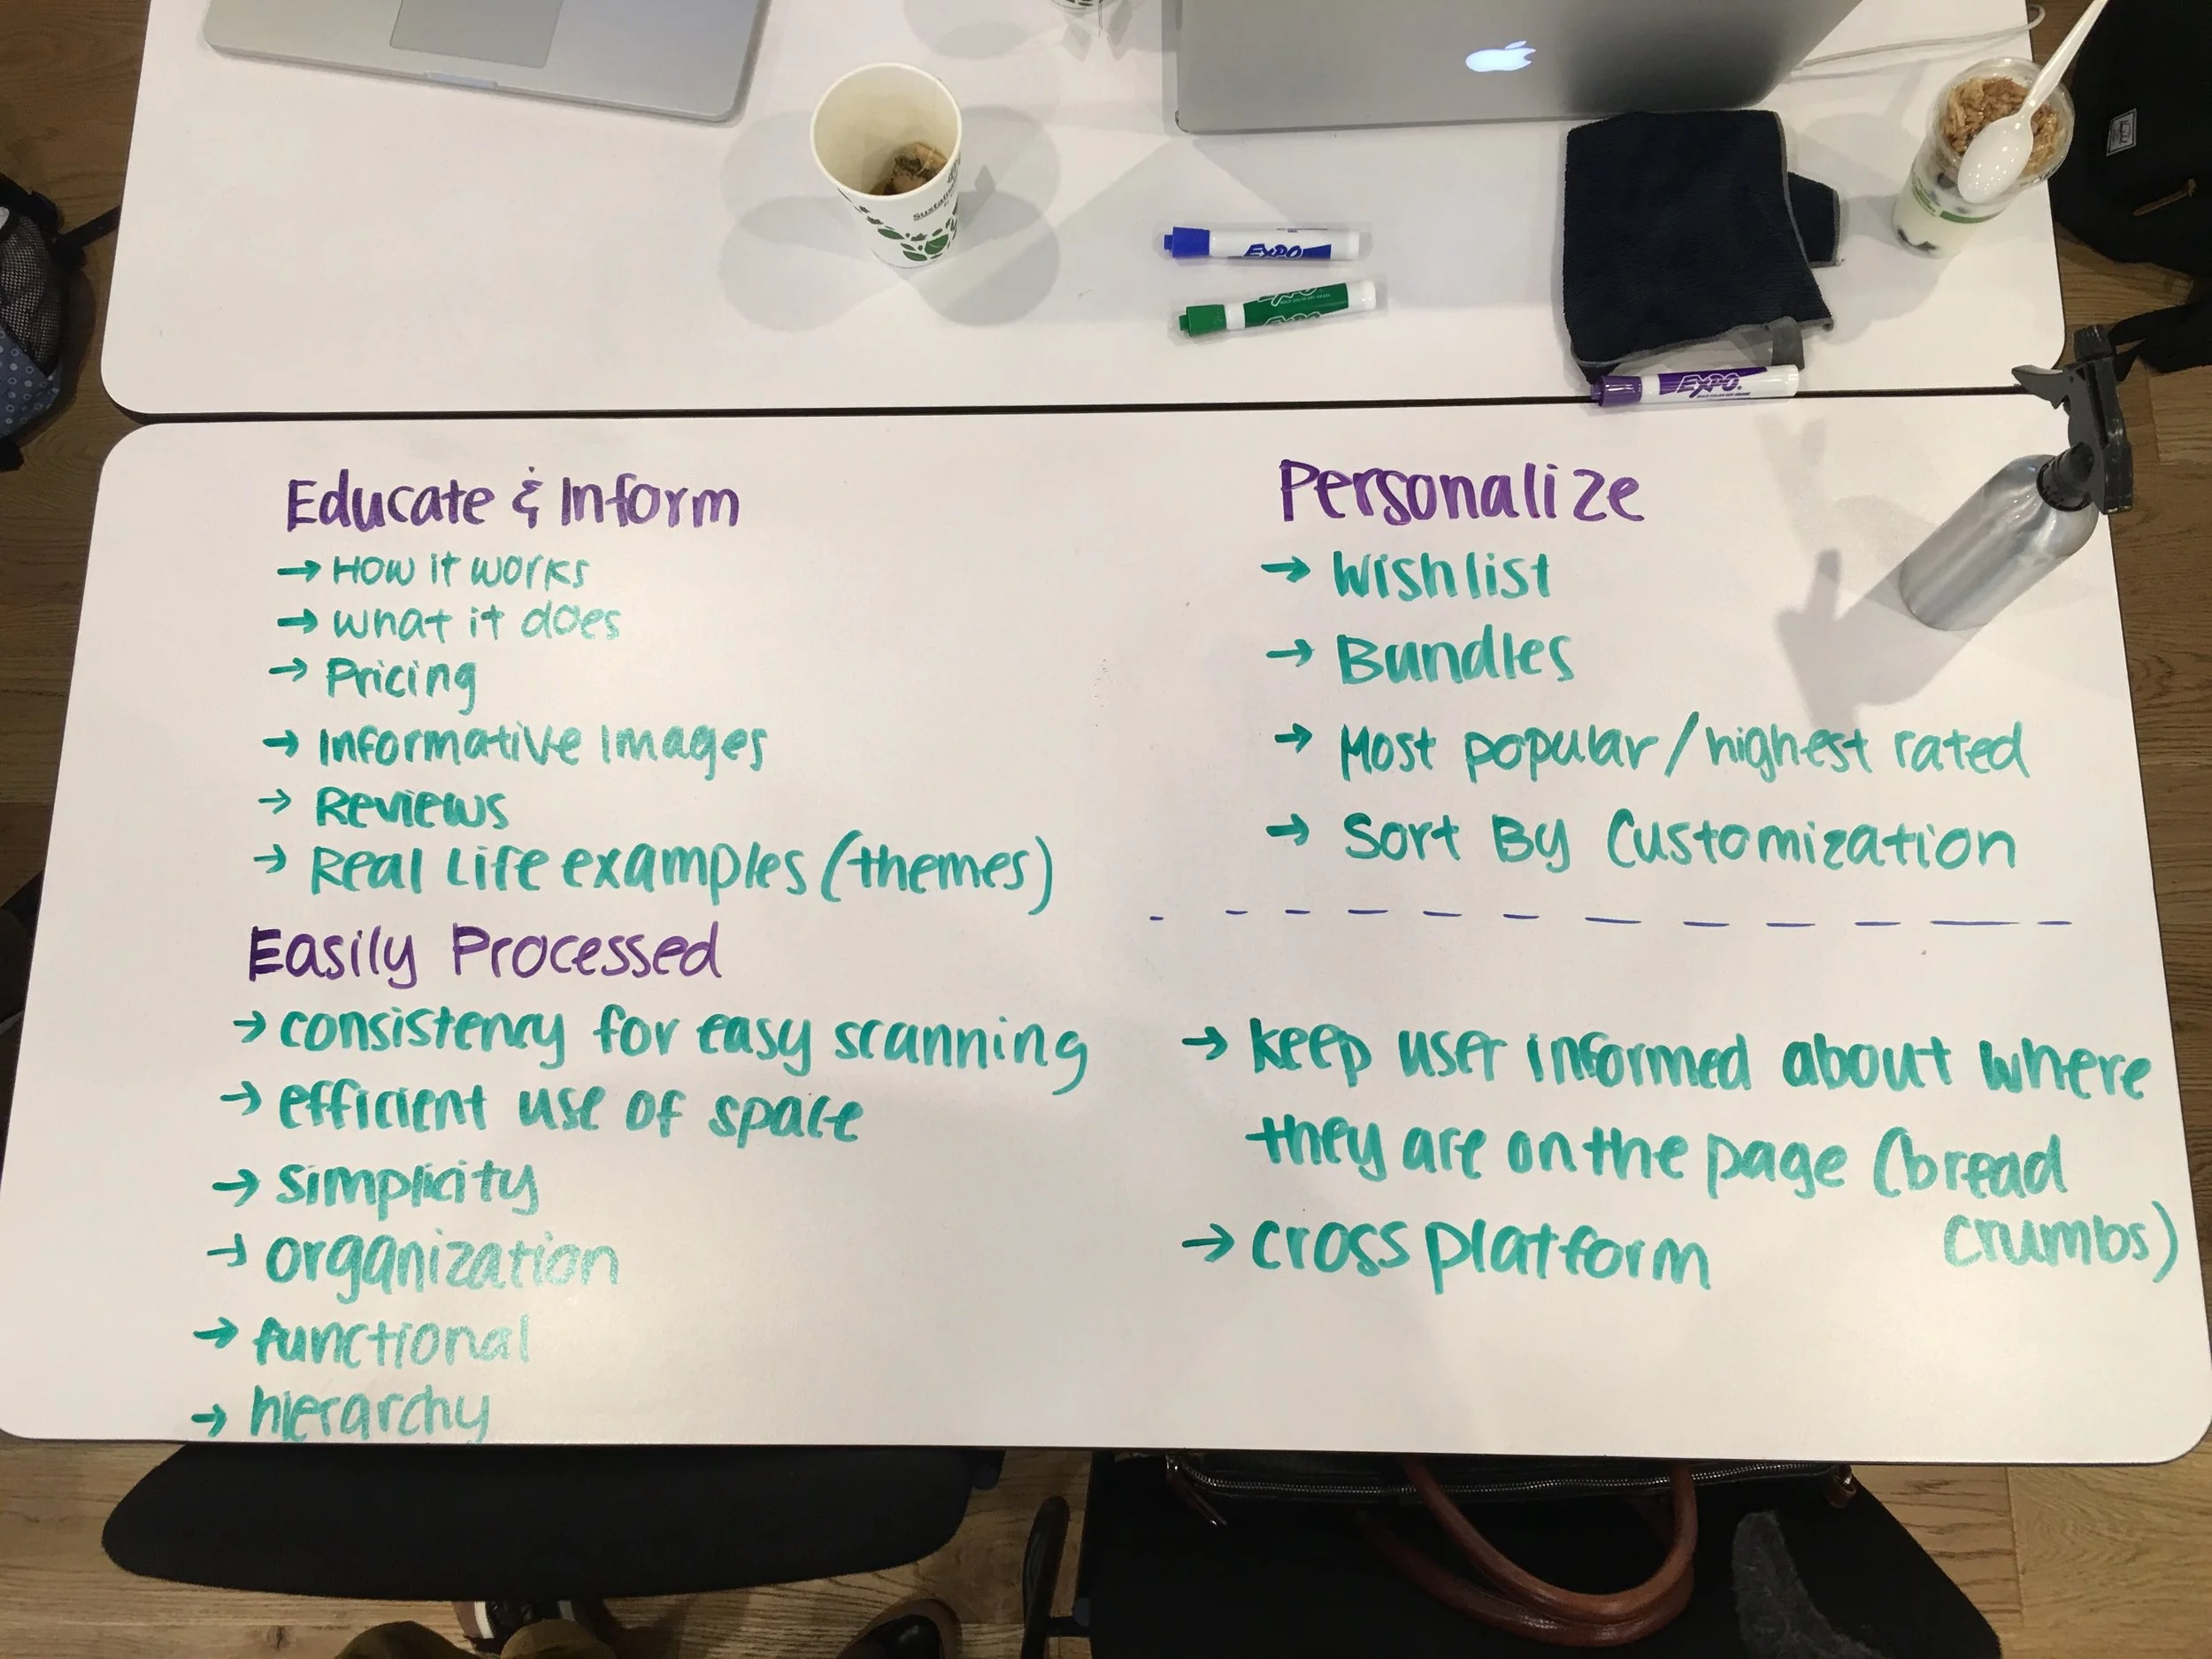 Sustain
EXPO
EXPO
EXPO.
Educate & Inform
→ How it works
→ what it does
→ Pricing
→ Informative Images
→ Reviews
→ Real Life examples (themes)
Easily Processed
→ consistency for easy scanning
→ efficient use of space
→ simplicity
→ organization
→ functional
→ hierarchy
Personalize
→ Wishlist
→ Bundles
→ Most popular/highest rated
→ Sort By Customization
→ keep user informed about where
they are on the page (bread
crumbs)
→ cross platform